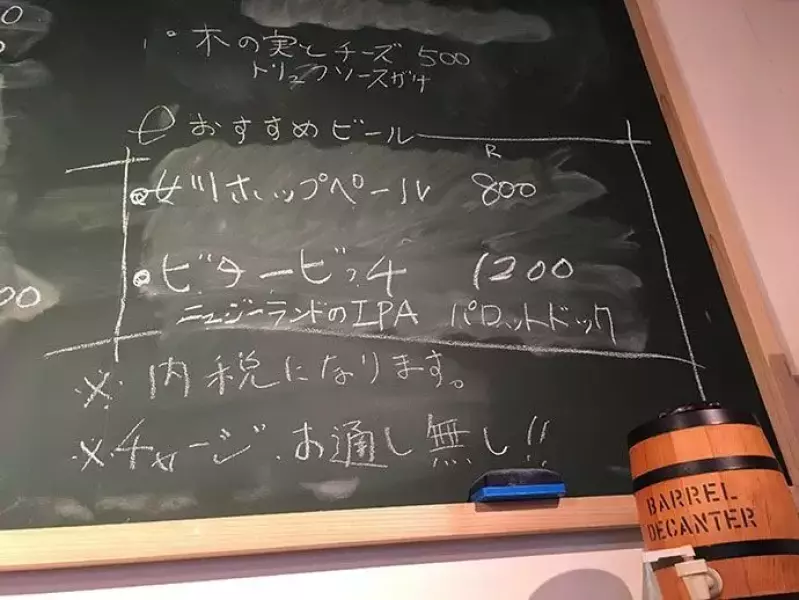 木の実とチーズ 500
トリュフソースがけ
おすすめビール
R
女川ホップペール 800
ビタービッチ 1200
ニュージーランドのIPA パロットドック
※ 内税になります。
※チャージ.お通し無し!!
BARREL
DECANTER